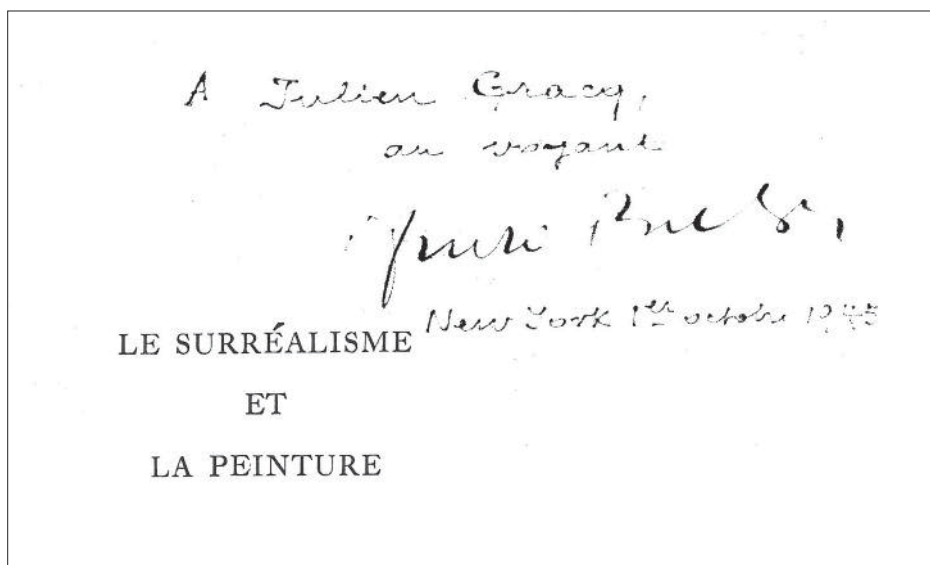 A Julien Gracq,
au voyant
André Breton,
New York 1er octobre 1945
LE SURRÉALISME
ET
LA PEINTURE